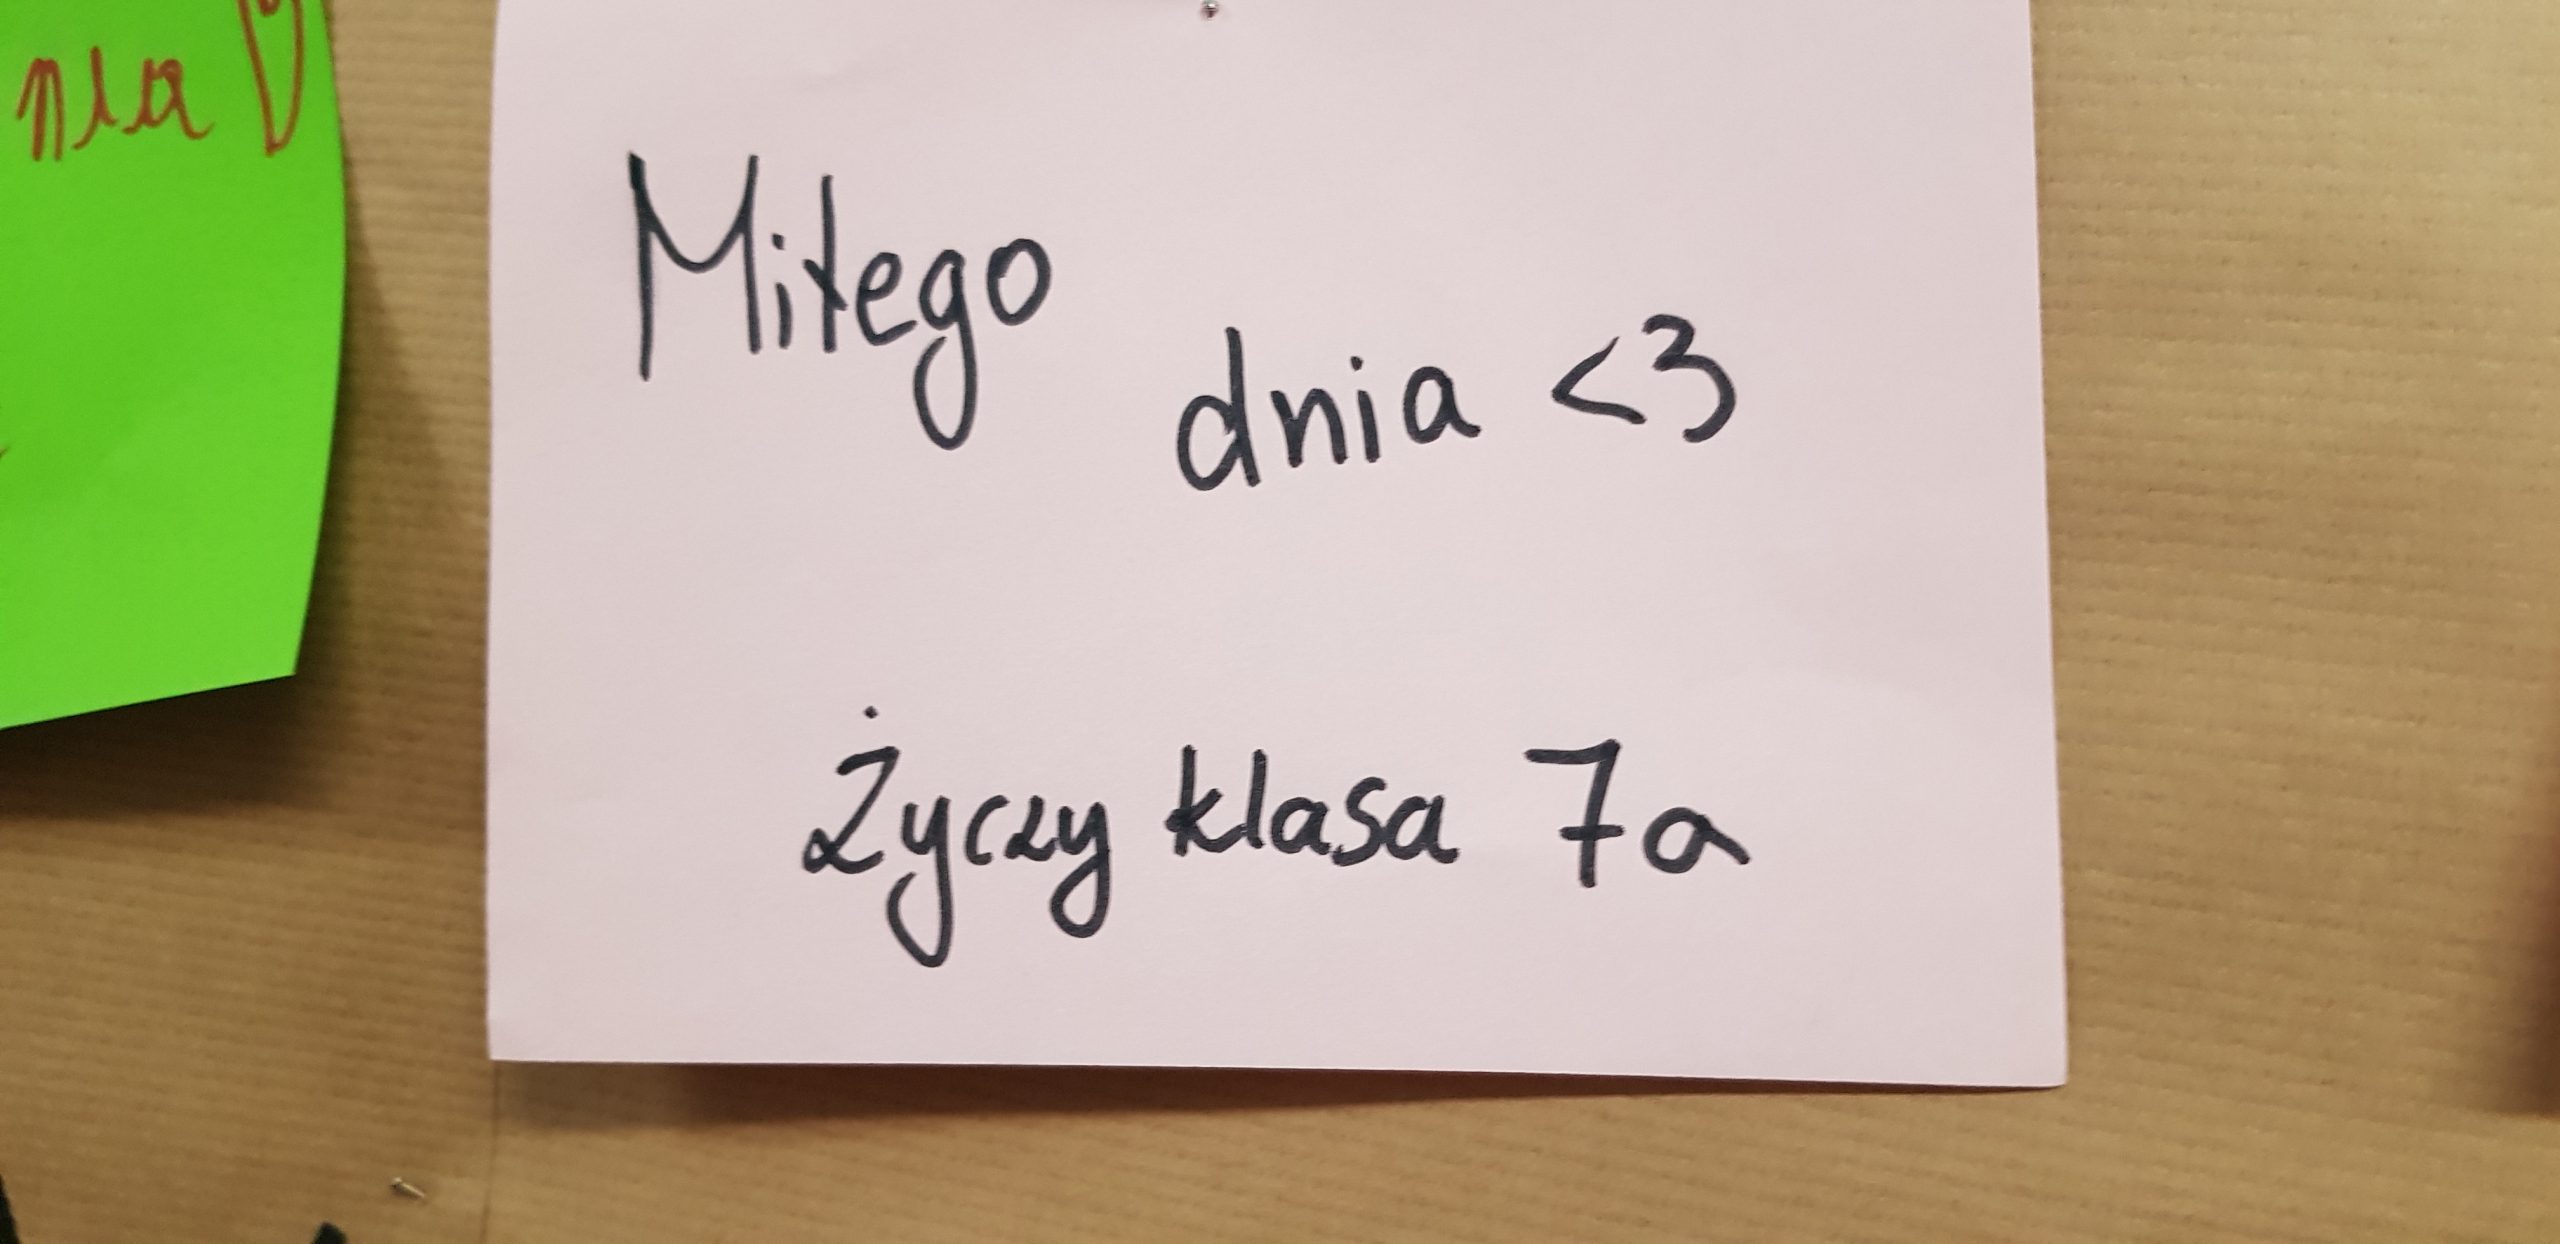 nia
Miłego
dnia <3
Życzy klasa 7a